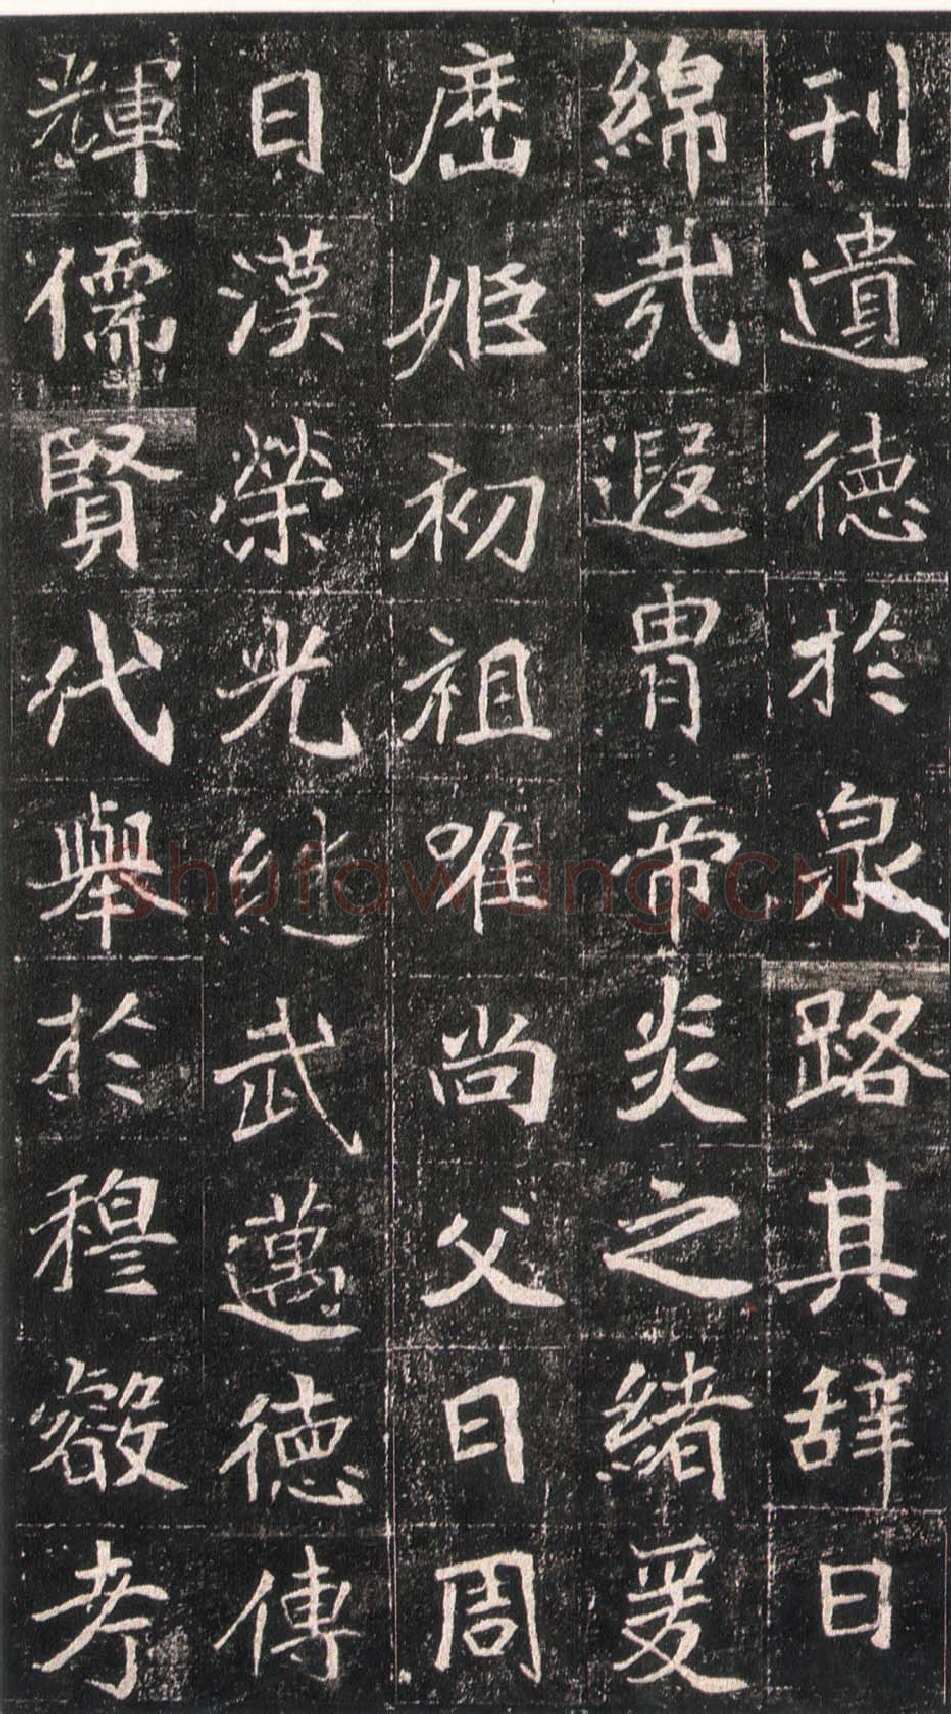 刊遺德於泉路其辞曰
綿㦲遐胄帝炎之緒爰
歷姬初祖唯尚父曰周
曰漢榮光継武邁德傳
輝儒賢代舉於穆叡考
shufawang.CN